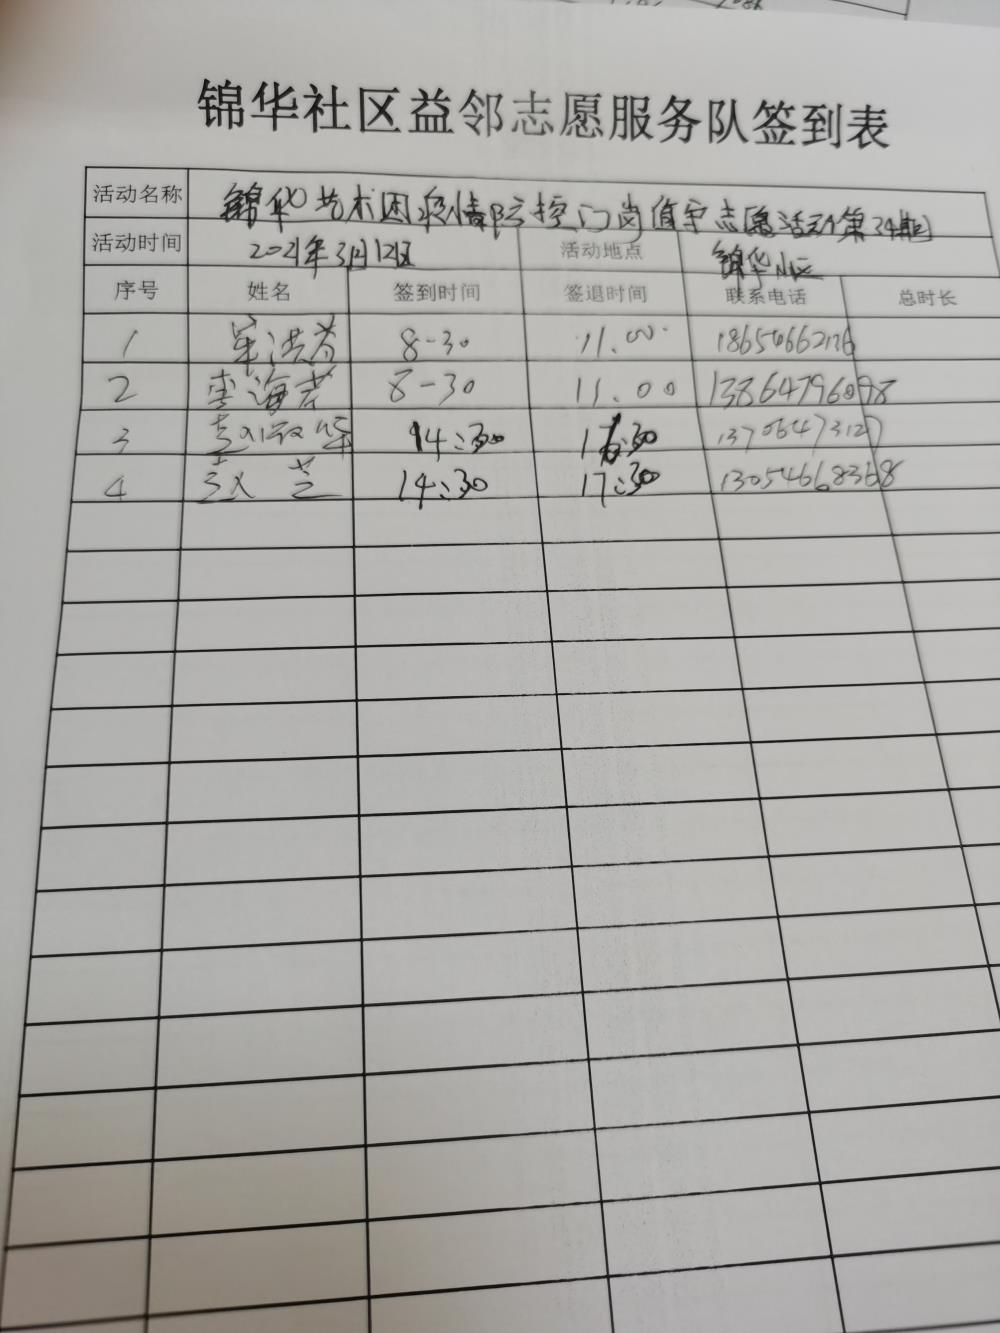 锦华社区益邻志愿服务队签到表
活动名称 锦华艺术团疫情防控门岗值守志愿活动第34期
活动时间 2021年3月12日 活动地点 锦华小区
序号 姓名 签到时间 签退时间 联系电话 总时长
1 8-30 11.00
2 李海芳 8-30 11.00 13864796098
3 14:30 17:30 13706473127
4 14:30 17:30 13054668368